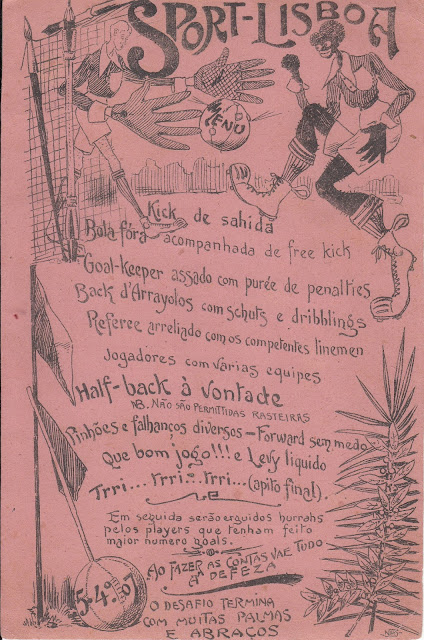 SPORT-LISBOA
MENU
Kick de sahida
Bola fóra acompanhada de free kick
Goal-Keeper assado com purée de penalties
Back d'Arrayolos com schuts e dribblings
Referee arreliado com os competentes linemen
Jogadores com varias equipes
Half-back à vontade
NB. NÃO SÃO PERMITTIDAS RASTEIRAS
Pinhões e falhanços diversos - Forward sem medo
Que bom jogo!!! e Levy liquido
Trri... Trri... Trri... (apito final).
Em seguida serão erguidos hurrahs
pelos players que tenham feito
maior numero goals.
AO FAZER AS CONTAS VAE TUDO
Á DEFEZA
5-4º-07
O DESAFIO TERMINA
COM MUITAS PALMAS
E ABRAÇOS